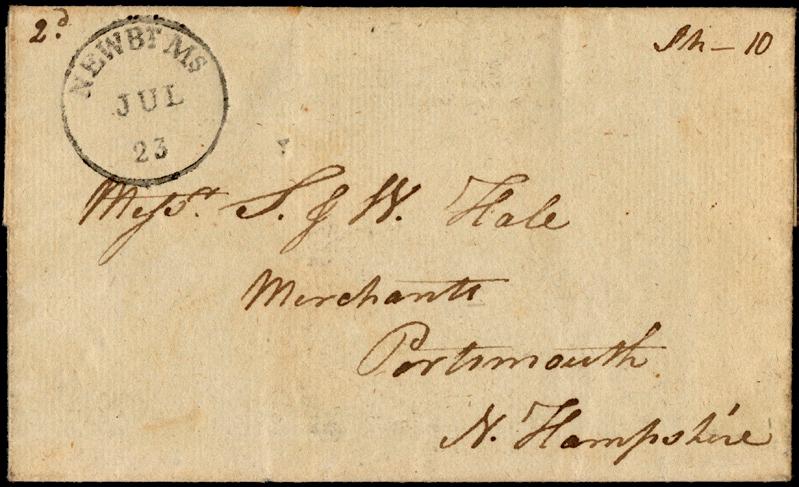 2.d
Sh – 10
NEWBT MS
JUL
23
Messrs. S. & W. Hale
Merchants
Portsmouth
N. Hampshire